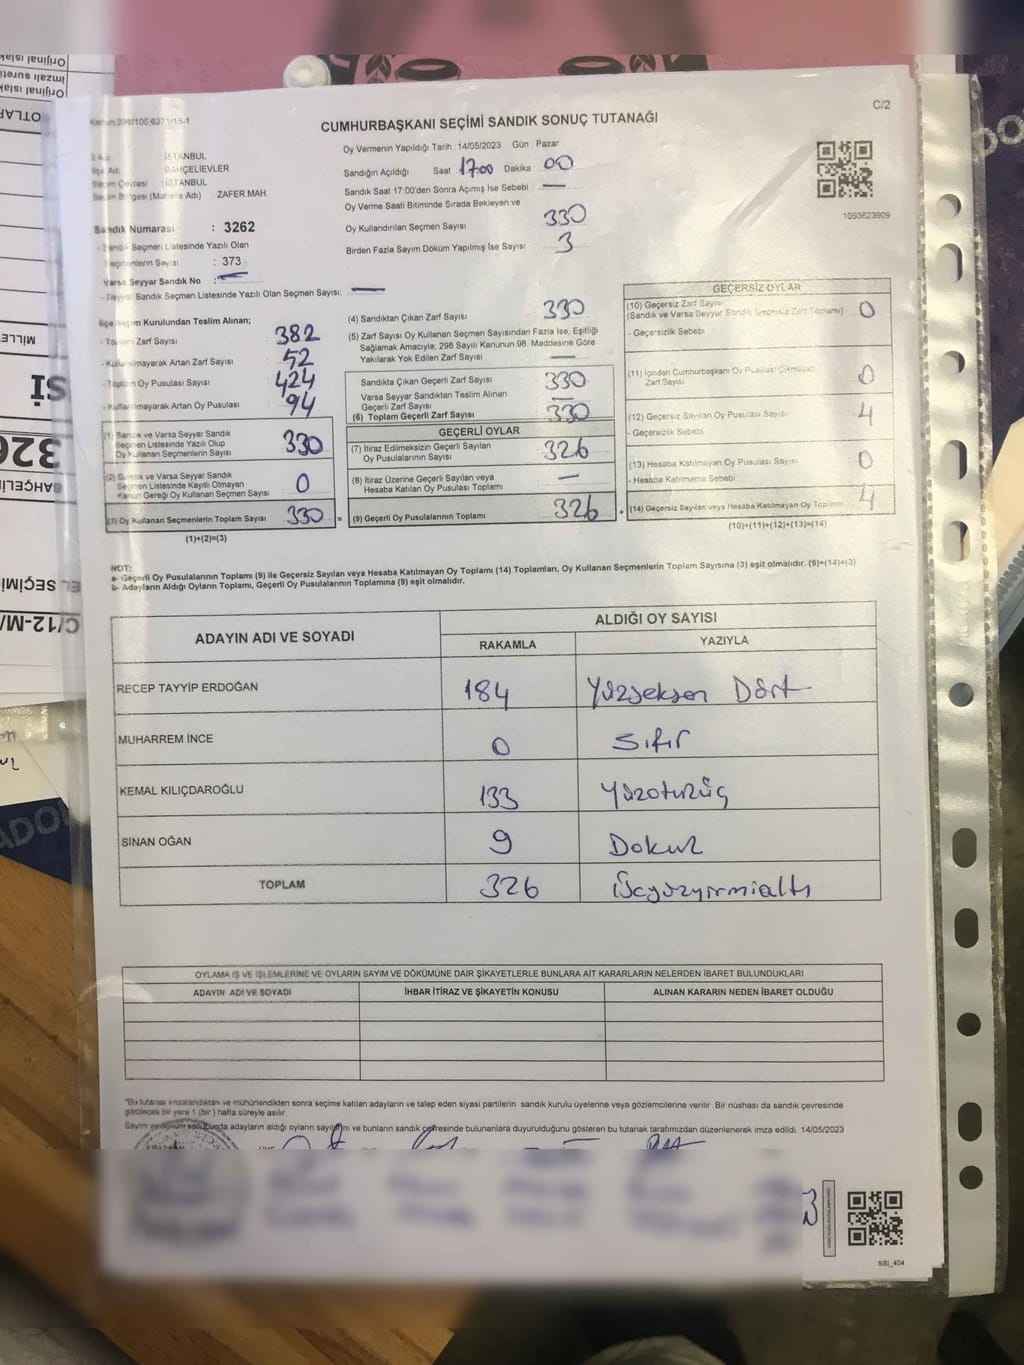 C/2
CUMHURBAŞKANI SEÇİMİ SANDIK SONUÇ TUTANAĞI
İSTANBUL
BAHÇELİEVLER
İSTANBUL
(Mahalle Adı) : ZAFER MAH.
Sandık Numarası : 3262
Sandık Seçmen Listesinde Yazılı Olan
Seçmenlerin Sayısı : 373
Varsa Seyyar Sandık No : —
Seyyar Sandık Seçmen Listesinde Yazılı Olan Seçmen Sayısı: —
Oy Vermenin Yapıldığı Tarih : 14/05/2023 Gün : Pazar
Sandığın Açıldığı Saat 17:00 Dakika 00
Sandık Saat 17:00'den Sonra Açımış İse Sebebi : —
Oy Verme Saati Bitiminde Sırada Bekleyen ve
Oy Kullandırılan Seçmen Sayısı : 330
Birden Fazla Sayım Döküm Yapılmış İse Sayısı : 3
1093623909
İlçe Seçim Kurulundan Teslim Alınan;
- Toplam Zarf Sayısı : 382
- Kullanılmayarak Artan Zarf Sayısı : 52
- Toplam Oy Pusulası Sayısı : 424
- Kullanılmayarak Artan Oy Pusulası : 94
(1) Sandık ve Varsa Seyyar Sandık
Seçmen Listesinde Yazılı Olup
Oy Kullanan Seçmenlerin Sayısı 330
(2) Sandık ve Varsa Seyyar Sandık
Seçmen Listesinde Kayıtlı Olmayan
Kanun Gereği Oy Kullanan Seçmen Sayısı 0
(3) Oy Kullanan Seçmenlerin Toplam Sayısı 330 =
(1)+(2)=(3)
(4) Sandıktan Çıkan Zarf Sayısı : 330
(5) Zarf Sayısı Oy Kullanan Seçmen Sayısından Fazla İse, Eşitliği
Sağlamak Amacıyla; 298 Sayılı Kanunun 98. Maddesine Göre
Yakılarak Yok Edilen Zarf Sayısı : —
Sandıkta Çıkan Geçerli Zarf Sayısı : 330
Varsa Seyyar Sandıktan Teslim Alınan
Geçerli Zarf Sayısı : —
(6) Toplam Geçerli Zarf Sayısı : 330
GEÇERLİ OYLAR
(7) İtiraz Edilmeksizin Geçerli Sayılan
Oy Pusulalarının Sayısı 326
(8) İtiraz Üzerine Geçerli Sayılan veya
Hesaba Katılan Oy Pusulası Toplamı —
(9) Geçerli Oy Pusulalarının Toplamı 326 +
GEÇERSİZ OYLAR
(10) Geçersiz Zarf Sayısı
(Sandık ve Varsa Seyyar Sandık Geçersiz Zarf Toplamı) 0
- Geçersizlik Sebebi
(11) İçinden Cumhurbaşkanı Oy Pusulası Çıkmayan
Zarf Sayısı 0
(12) Geçersiz Sayılan Oy Pusulası Sayısı 4
- Geçersizlik Sebebi
(13) Hesaba Katılmayan Oy Pusulası Sayısı 0
- Hesaba Katılmama Sebebi
(14) Geçersiz Sayılan veya Hesaba Katılmayan Oy Toplamı 4
(10)+(11)+(12)+(13)=(14)
NOT:
a- Geçerli Oy Pusulalarının Toplamı (9) ile Geçersiz Sayılan veya Hesaba Katılmayan Oy Toplamı (14) Toplamları, Oy Kullanan Seçmenlerin Toplam Sayısına (3) eşit olmalıdır. (9)+(14)=(3)
b- Adayların Aldığı Oyların Toplamı, Geçerli Oy Pusulalarının Toplamına (9) eşit olmalıdır.
ADAYIN ADI VE SOYADI
ALDIĞI OY SAYISI
RAKAMLA YAZIYLA
RECEP TAYYİP ERDOĞAN 184 Yüzseksen Dört
MUHARREM İNCE 0 Sıfır
KEMAL KILIÇDAROĞLU 133 Yüzotuzüç
SİNAN OĞAN 9 Dokuz
TOPLAM 326 Üçyüzyirmialtı
OYLAMA İŞ VE İŞLEMLERİNE VE OYLARIN SAYIM VE DÖKÜMÜNE DAİR ŞİKAYETLERLE BUNLARA AİT KARARLARIN NELERDEN İBARET BULUNDUKLARI
ADAYIN ADI VE SOYADI İHBAR İTİRAZ VE ŞİKAYETİN KONUSU ALINAN KARARIN NEDEN İBARET OLDUĞU
*Bu tutanak imzalandıktan ve mühürlendikten sonra seçime katılan adayların ve talep eden siyasi partilerin sandık kurulu üyelerine veya gözlemcilerine verilir. Bir nüshası da sandık çevresinde
görülecek bir yere 1 (bir) hafta süreyle asılır.
Sayım ve döküm sonucunda adayların aldığı oyların sayılarını ve bunların sandık çevresinde bulunanlara duyurulduğunu gösteren bu tutanak tarafımızdan düzenlenerek imza edildi. 14/05/2023
SSI_404